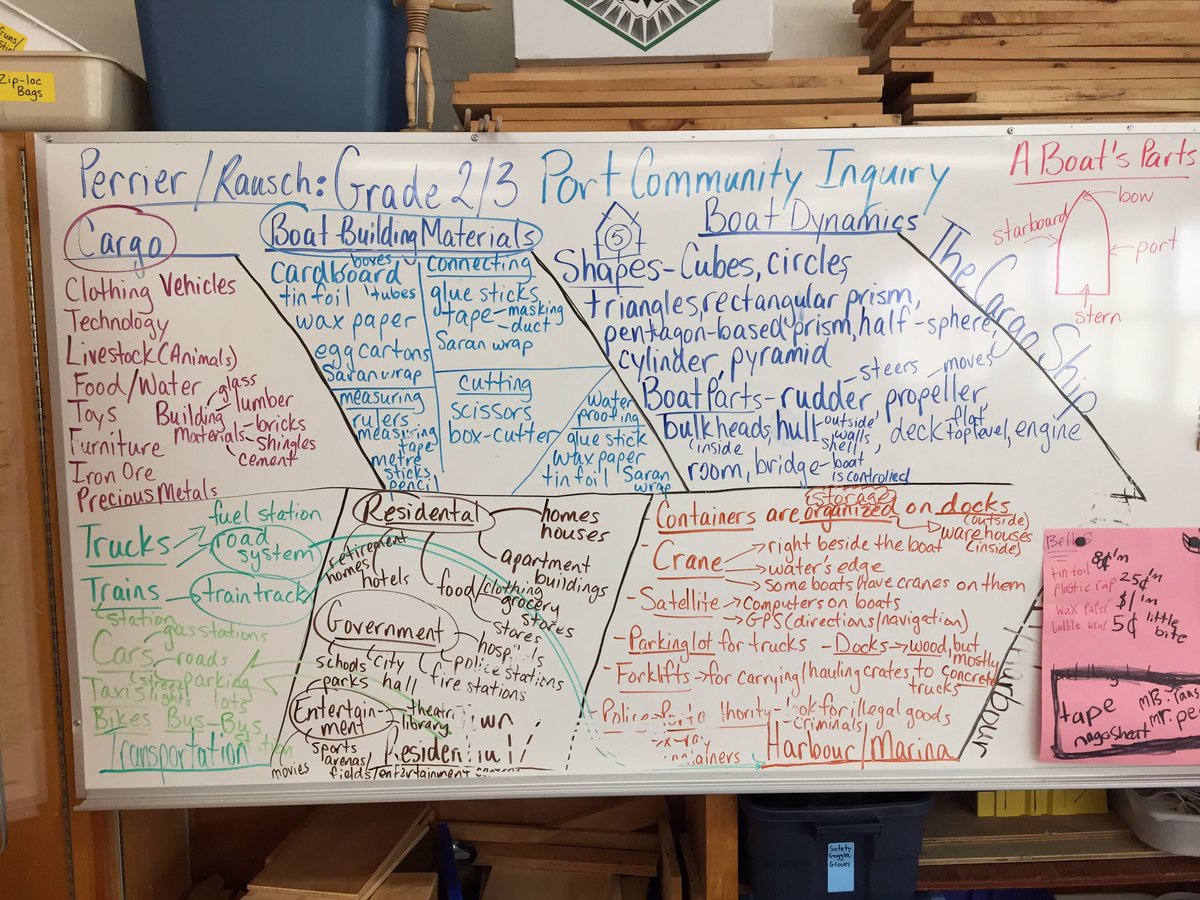 Zip-loc
Bags
Perrier/Rausch: Grade 2/3 Port Community Inquiry
A Boat's Parts
bow
starboard
port
stern
The Cargo Ship
Cargo
Clothing Vehicles
Technology
Livestock (Animals)
Food/Water
Toys
Furniture
Iron Ore
Precious Metals
Building Materials
glass
lumber
bricks
shingles
cement
Boat Building Materials
cardboard boxes
tubes
tin foil
wax paper
egg cartons
Saran wrap
measuring
rulers
measuring
tape
metre
sticks
pencil
connecting
glue sticks
tape - masking
- duct
Saran wrap
cutting
scissors
box-cutter
Water
proofing
glue stick
wax paper
tin foil Saran
wrap
5
Boat Dynamics
Shapes - Cubes, circles,
triangles, rectangular prism,
pentagon-based prism, half-sphere,
cylinder, pyramid
Boat Parts - rudder - steers propeller - moves
bulkheads, hull outside walls, shell, deck flat top level, engine
inside
room, bridge - boat
is controlled
Trucks
fuel station
road
system
Trains
train track
station
gas stations
Cars
roads
parking
lots
Taxis
street
lights
Bikes Bus - Bus
Transportation
Residental
homes
houses
apartment
buildings
retirement
homes
hotels
food/clothing
grocery
stores
stores
Government
hospitals
police stations
fire stations
city
hall
schools
parks
Entertain-
ment
theatre
library
sports
arenas/
fields/
movies
entertainment
Containers are organized (storage) on docks (outside)
warehouses
(inside)
- Crane → right beside the boat
→ water's edge
→ some boats have cranes on them
- Satellite → computers on boats
→ GPS (directions/navigation)
- Parking lot for trucks - Docks → wood, but
mostly
concrete
- Forklifts - for carrying/hauling crates, to
trucks
for illegal goods
criminals
Harbour/Marina
Harbour
tin foil 8¢/m
25¢/m
wax paper $1/m
5¢ little
bite
tape
Safety
Goggles,
Gloves